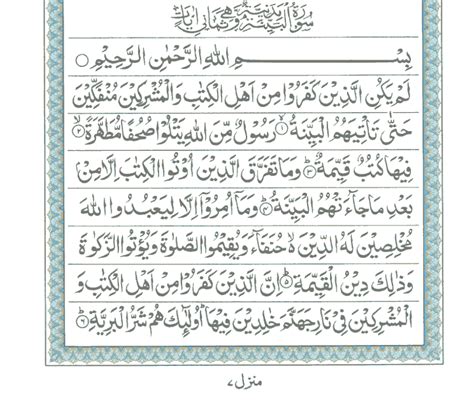 سُوْرَةُ الْبَيِّنَةِ مَدَنِيَّةٌ وَّهِيَ ثَمَانِيْ اٰيَاتٍ
بِسْمِ اللهِ الرَّحْمٰنِ الرَّحِيْمِ ○
لَمْ يَكُنِ الَّذِيْنَ كَفَرُوْا مِنْ اَهْلِ الْكِتٰبِ وَالْمُشْرِكِيْنَ مُنْفَكِّيْنَ
حَتّٰى تَاْتِيَهُمُ الْبَيِّنَةُ ۙ۱ رَسُوْلٌ مِّنَ اللهِ يَتْلُوْا صُحُفًا مُّطَهَّرَةً ۙ۲
فِيْهَا كُتُبٌ قَيِّمَةٌ ؕ۳ وَمَا تَفَرَّقَ الَّذِيْنَ اُوْتُوا الْكِتٰبَ اِلَّا مِنْۢ
بَعْدِ مَا جَآءَتْهُمُ الْبَيِّنَةُ ؕ۴ وَمَاۤ اُمِرُوْۤا اِلَّا لِيَعْبُدُوا اللهَ
مُخْلِصِيْنَ لَهُ الدِّيْنَ ۙ۬ حُنَفَآءَ وَيُقِيْمُوا الصَّلٰوةَ وَيُؤْتُوا الزَّكٰوةَ
وَذٰلِكَ دِيْنُ الْقَيِّمَةِ ؕ۵ اِنَّ الَّذِيْنَ كَفَرُوْا مِنْ اَهْلِ الْكِتٰبِ وَ
الْمُشْرِكِيْنَ فِيْ نَارِ جَهَنَّمَ خٰلِدِيْنَ فِيْهَا ؕ اُولٰٓئِكَ هُمْ شَرُّ الْبَرِيَّةِ ؕ۶
منزل ۷